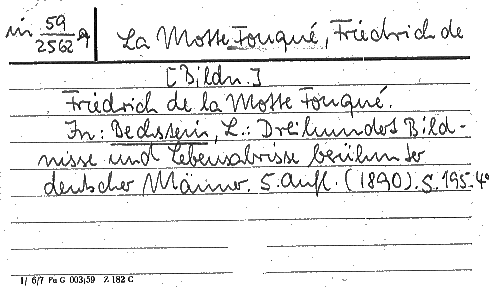 in 59/2562 a
La Motte Fouqué, Friedrich de
[Bildn.]
Friedrich de la Motte Fouqué.
In: Bechstein, L.: Dreihundert Bild-
nisse und Lebensabrisse berühmter
deutscher Männer. 5. Aufl. (1890). S. 195. 4°
1/ 6/7 Pa G 003/59 2 182 C